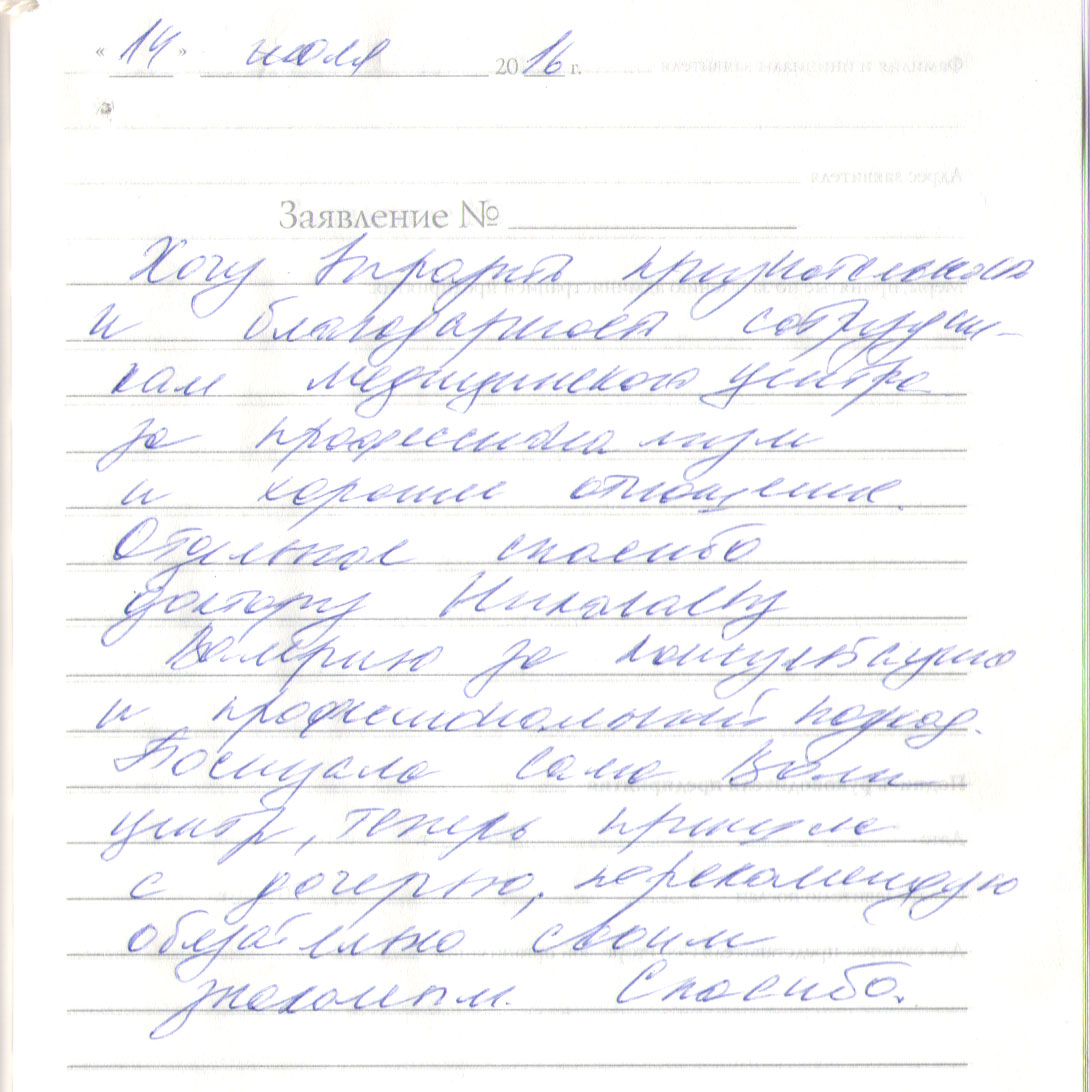 « 14 » июля 2016 г.
Заявление №
Хочу выразить признательность
и благодарность сотрудни-
кам медицинского центра
за профессионализм
и хорошее отношение.
Отдельное спасибо
доктору Николаеву
Валерию за консультацию
и профессиональный подход.
Посещала сама Ваш
центр, теперь пришла
с дочерью, порекомендую
обязательно своим
знакомым. Спасибо.